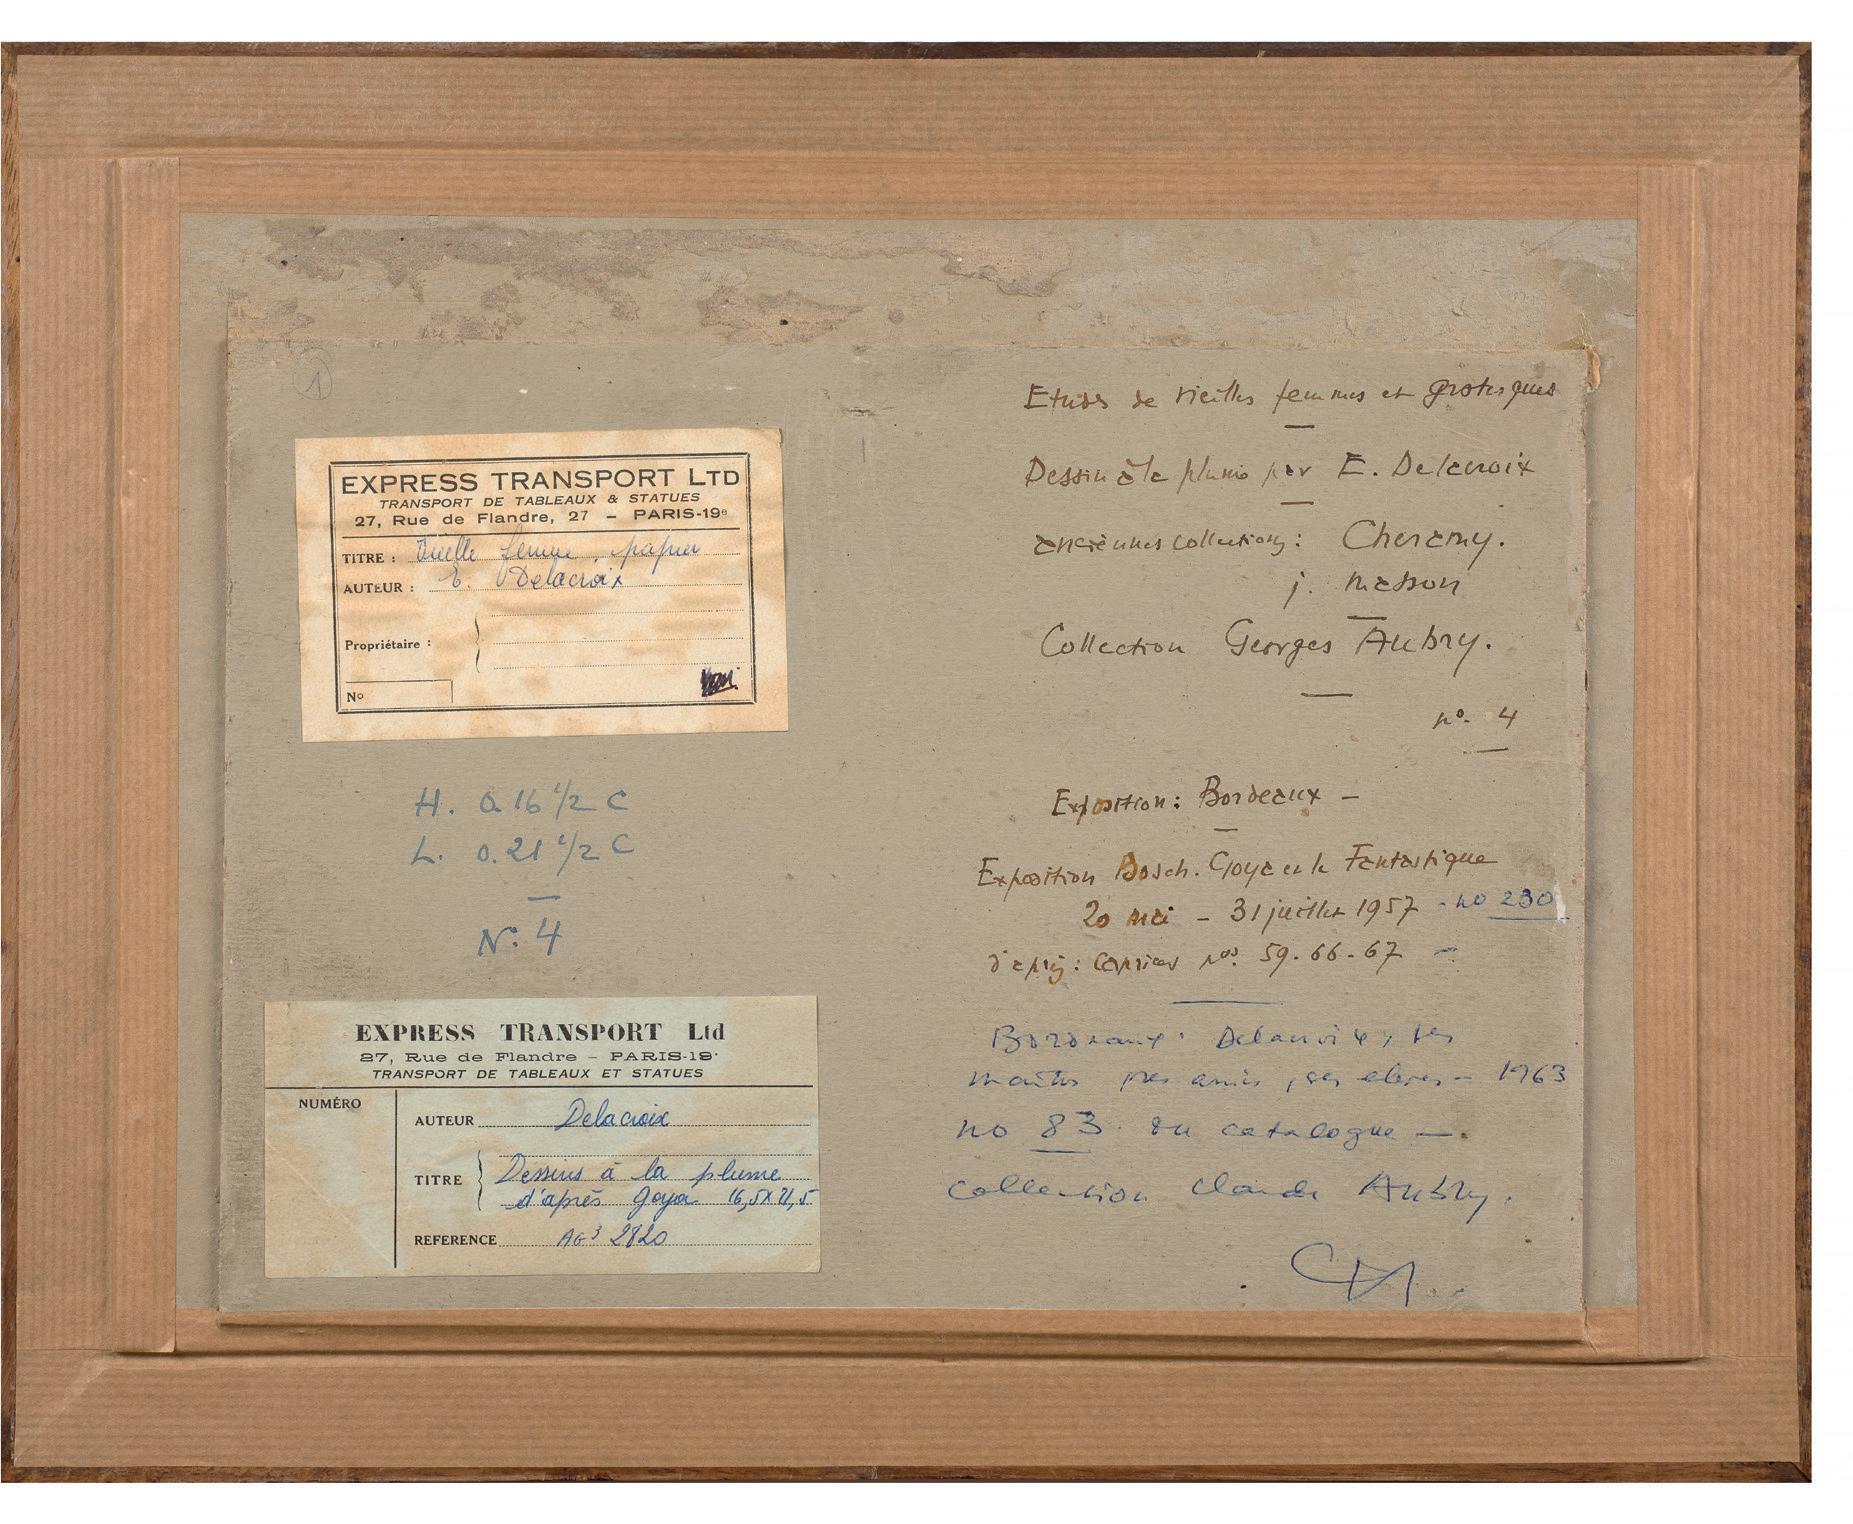 1
EXPRESS TRANSPORT LTD
TRANSPORT DE TABLEAUX & STATUES
27, Rue de Flandre, 27 – PARIS-19e
TITRE : Vieille femme, papier
AUTEUR : E. Delacroix
Propriétaire :
No
H. 0.16 1/2 C
L. 0.21 1/2 C
N. 4
EXPRESS TRANSPORT Ltd
27, Rue de Flandre – PARIS-19
TRANSPORT DE TABLEAUX ET STATUES
NUMÉRO
AUTEUR Delacroix
TITRE Dessins à la plume
d'après Goya 16,5x21,5
REFERENCE AG3 2820
Etudes de vieilles femmes et grotesques
Dessin à la plume par E. Delacroix
anciennes collections : Cheramy.
j. Masson
Collection Georges Aubry.
no. 4
Exposition : Bordeaux –
Exposition Bosch. Goya et le Fantastique
20 mai – 31 juillet 1957 - no 230
d'après : caprices nos. 59. 66 - 67 –
Bordeaux. Delacroix, ses
maîtres, ses amis, ses élèves – 1963
no 83 du catalogue –.
collection Claude Aubry.
CA.